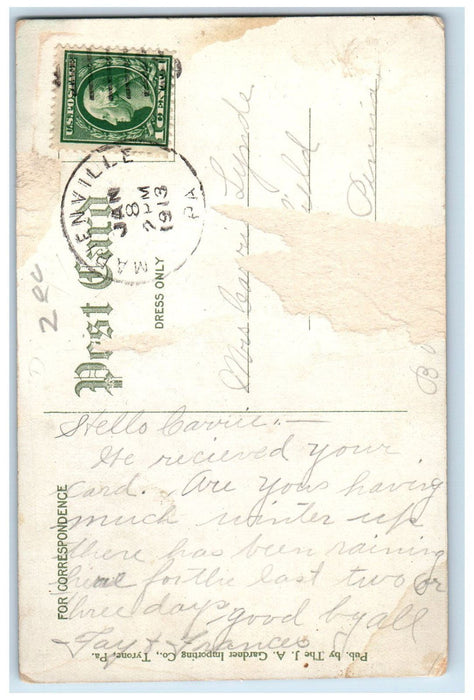 U.S. POSTAGE
1 CENT 1
ENVILLE
JAN
8
2 PM
1913
PA
Post Card
DRESS ONLY
200
Mrs Carrie Lynde
field
Penna
FOR CORRESPONDENCE
Hello Carrie.—
We recieved your
card. Are yous having
much winter up
there has been raining
here for the last two or
three days good by all
Fay & Frances
Pub. by The J. A. Gardner Importing Co., Tyrone, Pa.